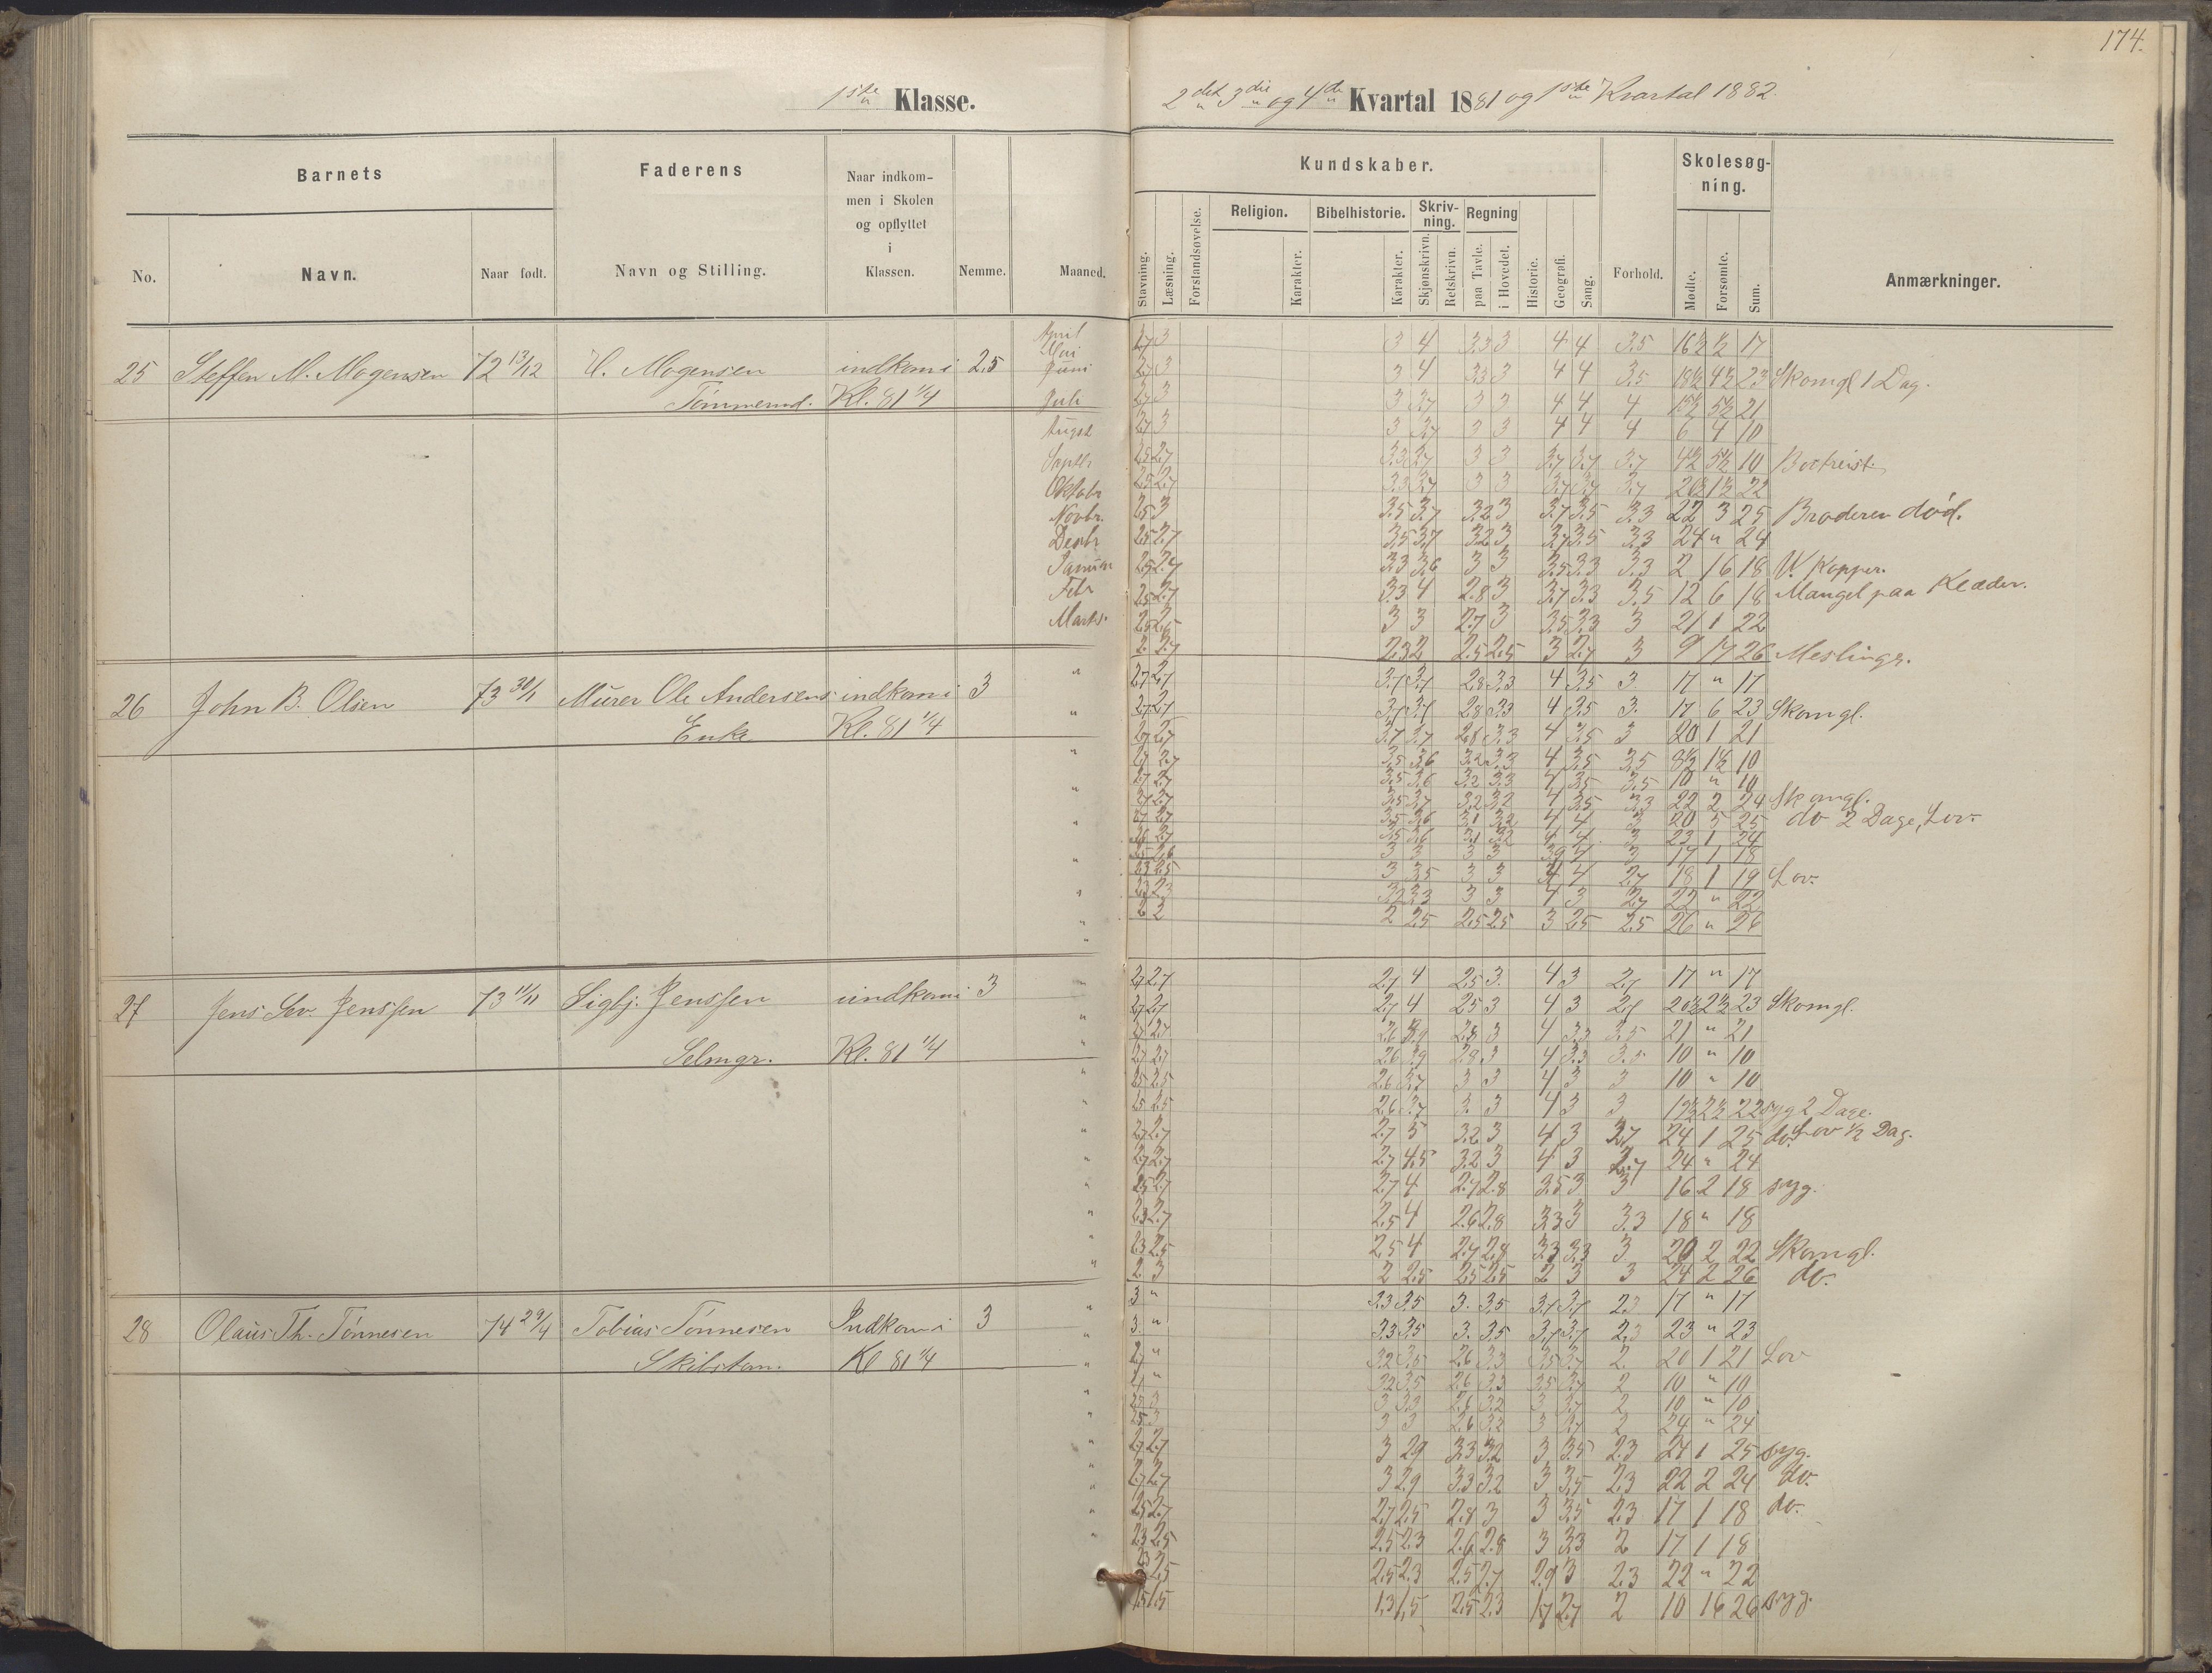 174.
1ste Klasse.
2det 3die og 4de Kvartal 1881 og 1ste Kvartal 1882.
Barnets
Faderens
Naar indkommen i Skolen og opflyttet i Klassen.
Nemme.
Maaned.
No.
Navn.
Naar født.
Navn og Stilling.
Kundskaber.
Stavning.
Læsning.
Forstandsøvelse.
Religion.
Karakter.
Bibelhistorie.
Karakter.
Skrivning.
Skjønskrivn.
Retskrivn.
Regning
paa Tavle.
i Hovedet.
Historie.
Geografi.
Sang.
Forhold.
Skolesøgning.
Mødte.
Forsømte.
Sum.
Anmærkninger.
25 Steffen M. Mogensen 72 13/12 H. Mogensen indkom i 2,5
Tømmermd. Kl. 81 1/4
April
Mai
Juni
Juli
Augst
Septbr
Oktobr
Novbr.
Decbr
Januar
Febr
Marts.
3 4 3,3 3 4 4 3,5 16½ ½ 17
3 4 3,3 3 4 4 3,5 18½ 4½ 23 Skomgl 1 Dag.
3 3,7 3 3 4 4 4 15½ 5½ 21
3 3,7 3 3 4 4 4 6 4 10
3,3 3,7 3 3 3,7 3,7 3,7 4½ 5½ 10 Bortreist.
3,3 3,7 3 3 3,7 3,7 3,7 20½ 1½ 22
3,5 3,7 3,2 3 3,7 3,5 3,3 22 3 25 Broderen død.
3,5 3,7 3,2 3 3,7 3,5 3,3 24 " 24
3,3 3,6 3 3 3,5 3,3 3,3 2 16 18 V. Kopper.
3,3 4 2,8 3 3,7 3,3 3,5 12 6 18 Mangel paa Klæder.
3 3 2,7 3 3,5 3,3 3 21 1 22
2,3 2 2,5 2,5 3 2,7 3 9 17 26 Meslinger.
26 John B. Olsen 73 30/1 Murer Ole Andersens indkom i 3
Enke Kl. 81 1/4
3,7 3,7 2,8 3,3 4 3,5 3. 17 " 17
3,7 3,7 2,8 3,3 4 3,5 3. 17 6 23 Skomgl.
3,7 3,7 2,8 3,3 4 3,5 3 20 1 21
3,5 3,6 3,2 3,3 4 3,5 3,5 8½ 1½ 10
3,5 3,6 3,2 3,3 4 3,5 3,5 10 " 10
3,5 3,7 3,2 3,2 4 3,5 3,3 22 2 24 Skomgl.
3,5 3,6 3,1 3,2 4 4 3 20 5 25 do 2 Dage, Lov.
3,5 3,6 3,1 3,2 4 4 3 23 1 24
3 3 3 3 3,9 4 3 17 1 18
3 3,5 3 3 4 4 2,7 18 1 19 Lov.
3,2 3,3 3 3 4 3 2,7 22 " 22
2 2,5 2,5 2,5 3 2,5 2,5 26 " 26
27 Jens Sev. Jenssen 73 11/11 Sigbj. Jenssen indkom i 3
Selmgr. Kl. 81 1/4
2,7 4 2,5 3. 4 3 2,7 17 " 17
2,7 4 2,5 3 4 3 2,7 20½ 2½ 23 Skomgl.
2,6 3,9 2,8 3 4 3,3 3,5 21 " 21
2,6 3,9 2,8 3 4 3,3 3,5 10 " 10
2,6 3,7 3 3 4 3 3 10 " 10
2,6 3,7 3. 3 4 3 3 19½ 2½ 22 syg 2 Dage.
2,7 5 3,2 3 4 3 3,7 24 1 25 do. Lov ½ Dag.
2,7 4,5 3,2 3 4 3 2,7 24 " 24
2,7 4 2,7 2,8 3,5 3 3 16 2 18 syg.
2,5 4 2,6 2,8 3,3 3 3,3 18 " 18
2,5 4 2,7 2,8 3,3 3,3 3 20 2 22 Skomgl.
2 2,5 2,5 2,5 2 3 3 24 2 26 do.
28 Olaus Th. Tønnesen 74 29/4 Tobias Tønnesen Indkom i 3
Skibstøm. Kl 81 1/4
3 " 3,3 3,5 3. 3,5 3,7 3,7 2,3 17 " 17
3. " 3,3 3,5 3. 3,5 3,7 3,7 2,3 23 " 23
3,2 3,5 2,6 3,3 3,5 3,7 2. 20 1 21 Lov
3,2 3,5 2,6 3,3 3,5 3,7 2 10 " 10
3 3,3 2,6 3,2 3 3,7 2 10 " 10
3 3 2,6 3,2 3 3,7 2 24 " 24
3 2,9 3,3 3,2 3 3,5 2,3 24 1 25 syg.
3 2,9 3,3 3,2 3 3,5 2,3 22 2 24 do.
2,7 2,5 2,8 3 3 3,5 2,3 17 1 18 do.
2,5 2,3 2,6 2,8 3 3,3 2 17 1 18
2,5 2,3 2,5 2,7 2,9 3 2,3 22 " 22
1,3 1,5 2,5 2,3 1,7 2,7 2 10 16 26 syg.